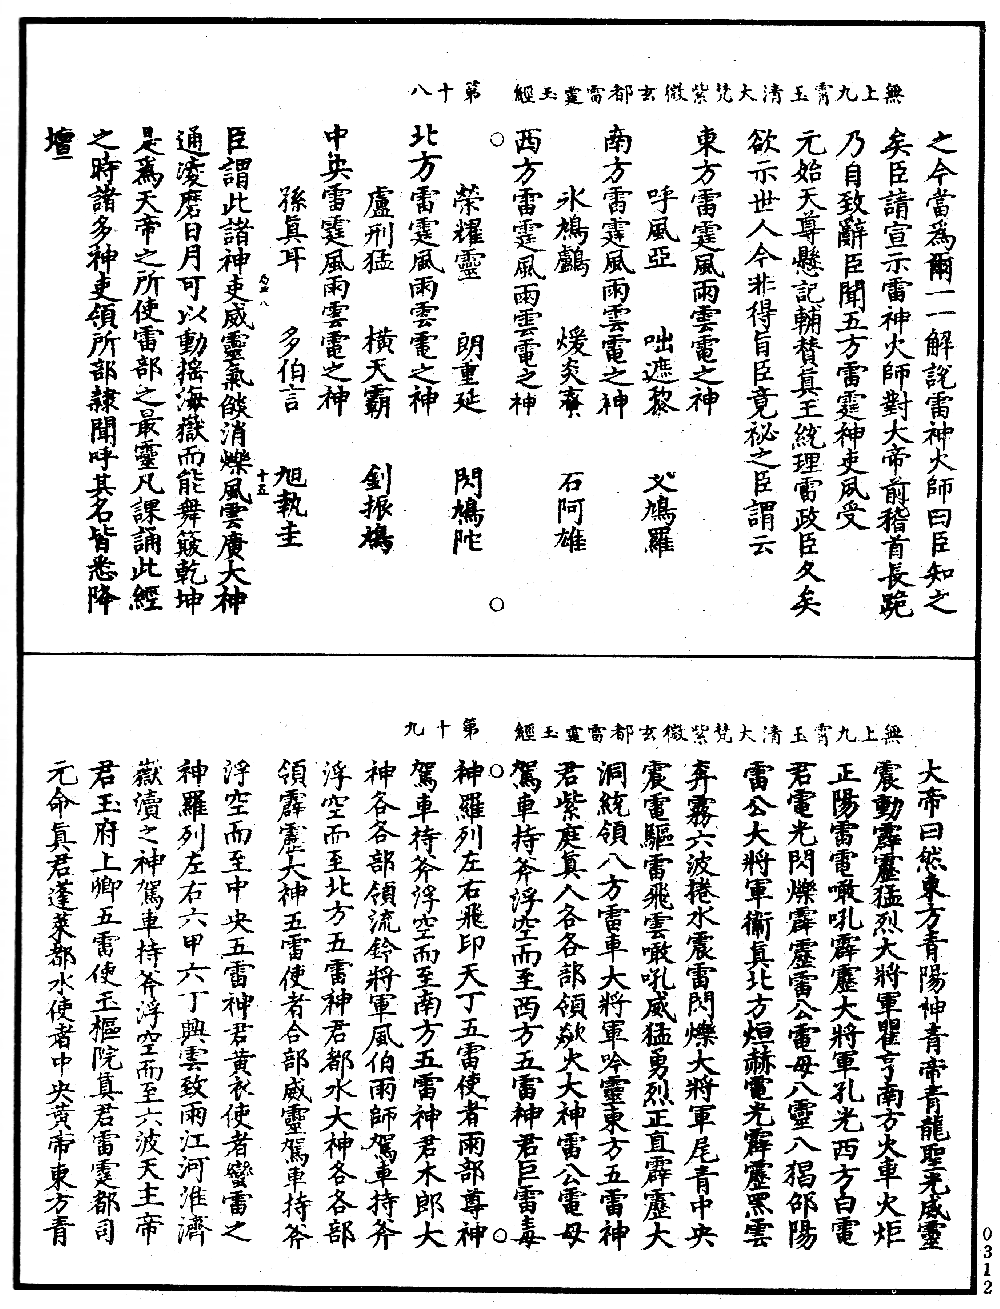 之今當爲爾一一解說雷神火師曰臣知之
矣臣請宣示雷神火師對大帝前稽首長跪
乃自致辭臣聞五方雷霆神吏夙受
元始天尊懸記輔賛眞王統理雷政臣久矣
欲示世人今非得旨臣竟祕之臣謂云
東方雷霆風雨雲電之神
呼風亞 咄遮黎 乂鳩羅
南方雷霆風雨雲電之神
氷鳩鸕 煖炎 石阿雄
西方雷霆風雨雲電之神
榮耀靈 朗重延 閃鳩陀
北方雷霆風雨雲電之神
盧刑猛 橫天霸 劉振鳩
中央雷霆風雨雲電之神
孫眞耳 多伯言 旭執圭
臣謂此諸神吏威靈氣燄消爍風雲廣大神
通凌磨日月可以動搖海嶽而能舞簸乾坤
是爲天帝之所使雷部之最靈凡課誦此經
之時諸多神吏領所部隷聞呼其名皆悉降
壇
無上九霄玉清大梵紫微玄都雷霆玉經 第十八
十五
大帝曰然東方青陽神青帝青龍聖光威靈
震動霹靂猛烈大將軍瞿亨南方火車火炬
正陽雷電噉吼霹靂大將軍孔光西方白電
君電光閃爍霹靂雷公電母八靈八猖邵陽
雷公大將軍衞眞北方烜赫電光霹靂黑雲
奔霧六波捲水震雷閃爍大將軍尾青中央
震電驅雷飛雲噉吼威猛勇烈正直霹靂大
洞統領八方雷車大將軍吟靈東方五雷神
君紫庭眞人各各部領歘火大神雷公電母
駕車持斧浮空而至西方五雷神君巨雷毒
神羅列左右飛印天丁五雷使者雨部尊神
駕車持斧浮空而至南方五雷神君木郎大
神各各部領流鈴將軍風伯雨師駕車持斧
浮空而至北方五雷神君都水大神各各部
領霹靂大神五雷使者合部威靈駕車持斧
浮空而至中央五雷神君黄衣使者蠻雷之
神羅列左右六甲六丁興雲致雨江河淮濟
嶽瀆之神駕車持斧浮空而至六波天主帝
君玉府上卿五雷使玉樞院眞君雷霆都司
元命眞君蓬萊都水使者中央黄帝東方青
無上九霄玉清大梵紫微玄都雷霆玉經 第十九
0312